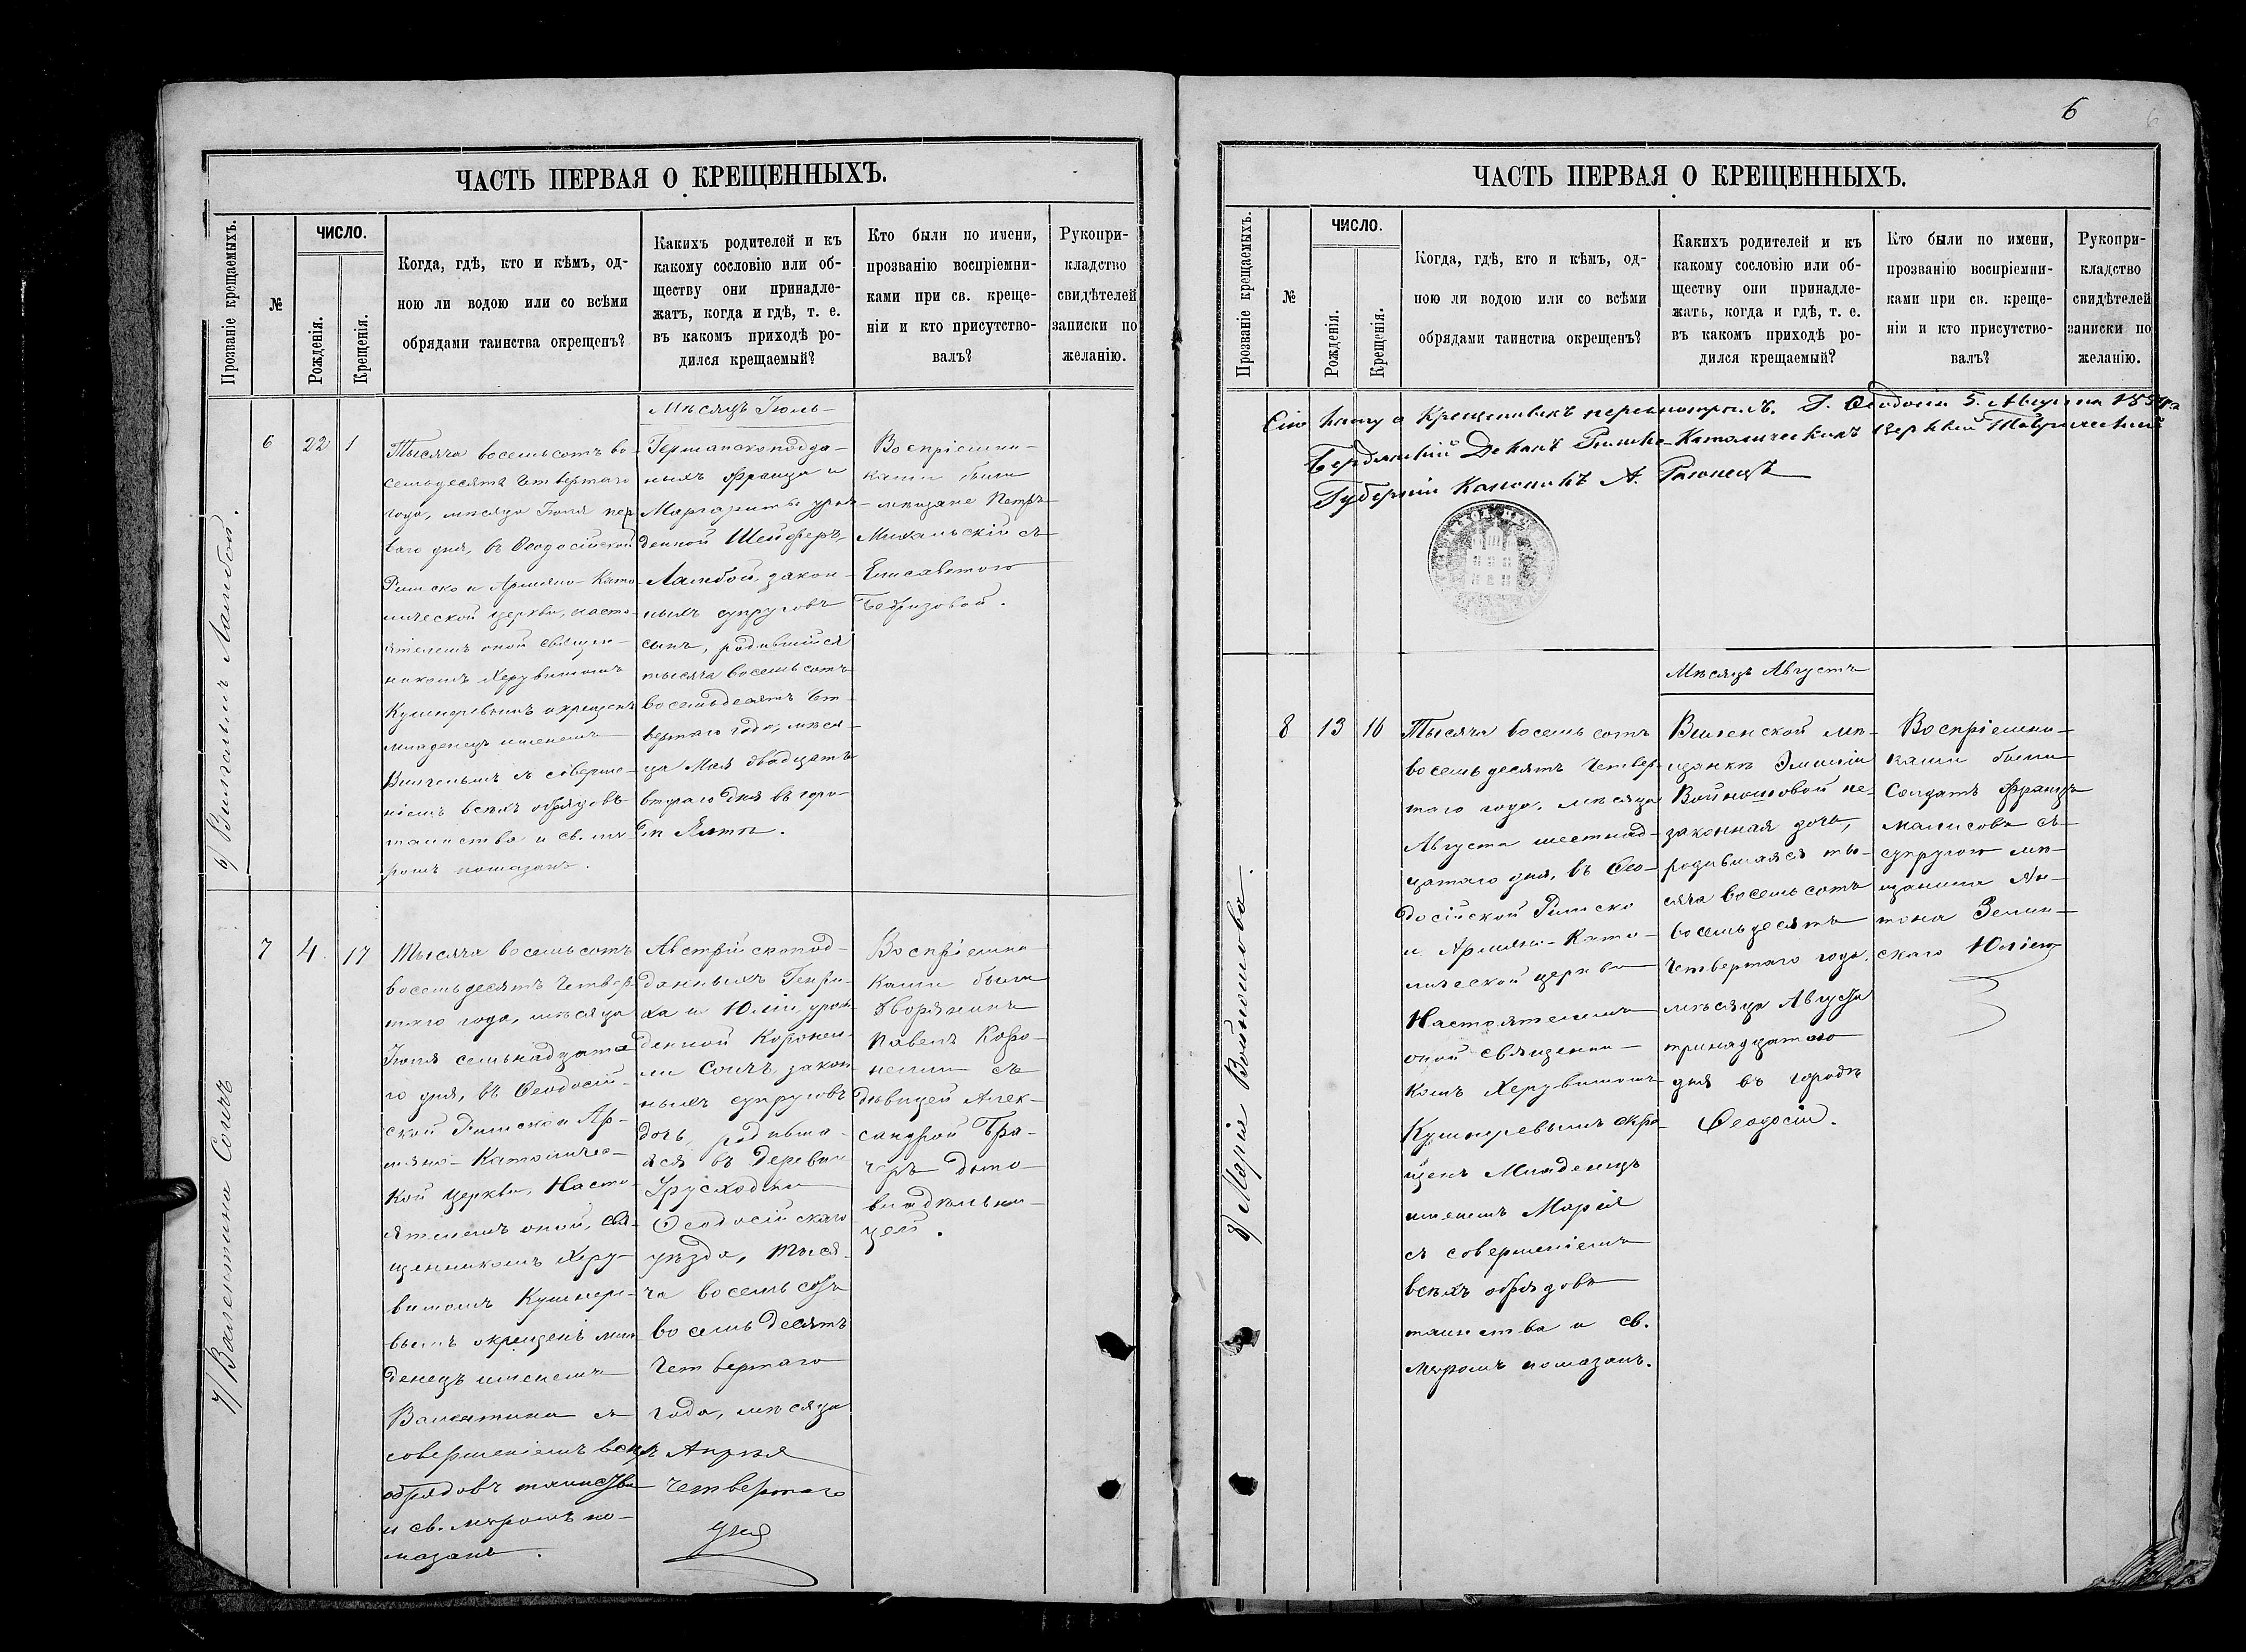 ЧАСТЬ ПЕРВАЯ О КРЕЩЕННЫХЪ.
Прозваніе крещаемыхъ.
№
ЧИСЛО.
Рожденія.
Крещенія.
Когда, гдѣ, кто и кѣмъ, од-
ною ли водою или со всѣми
обрядами таинства окрещенъ?
Какихъ родителей и къ
какому сословію или об-
ществу они принадле-
жатъ, когда и гдѣ, т. е.
въ какомъ приходѣ ро-
дился крещаемый?
Кто были по имени,
прозванію воспріемни-
ками при св. креще-
ніи и кто присутство-
валъ?
Рукопри-
кладство
свидѣтелей
записки по
желанію.
Мѣсяцъ Іюль
6/ Вильгельмъ Ламбой.
6
22
1
Тысяча восемьсотъ во-
семьдесятъ четвертаго
года, мѣсяца Іюля пер
ваго дня, въ Ѳеодосійской
Римско и Армяно-Като-
лической церкви, насто-
ятелемъ оной священ-
никомъ Херувимомъ
Кушнеревымъ окрещенъ
младенецъ именемъ
Вильгельмъ съ соверше-
ніемъ всѣхъ обрядовъ
таинства и св. мѵ
ромъ помазанъ.
Германскоподда-
ныхъ Франца и
Маргариты урож-
денной Шейферъ,
Ламбой, закон-
ныхъ супруговъ
сынъ, родившійся
тысяча восемьсотъ
восемьдесятъ чет-
вертаго года, мѣся-
ца Мая двадцать
втораго дня въ горо-
дѣ Ялтѣ.
Воспріемни-
ками были
мѣщане Петръ
Михальскій съ
Елисаветою
7/ Валентина Сончъ
7
4.
17
Тысяча восемьсотъ
восемьдесятъ четвер-
таго года, мѣсяца
Іюля семьнадцата
го дня, въ Ѳеодосій-
ской Римско и Ар-
мяно-Католичес-
кой церкви, Насто-
ятелемъ оной, свя-
щенникомъ Херу-
вимомъ Кушнере-
вымъ окрещенъ мла-
денецъ именемъ
Валентина съ
совершеніемъ всѣхъ
обрядовъ таинства
и св. мѵромъ по-
мазанъ.
Австрійскопод-
данныхъ Генри-
ха и Юліи, урож-
денной Коронел-
ли Сончъ, закон-
ныхъ супруговъ
дочь, родивша-
яся въ деревни
Ѳеодосійскаго
уѣзда, тыся-
ча восемьсотъ
восемьдесятъ
четвертаго
года, мѣсяца
Апрѣля
четвертаго
дня
Воспріемни
ками были
Дворянинъ
Павелъ Коро-
нелли съ
дѣвицей Алек-
сандрой Бра-
черъ домо-
владѣльни-
цей.
6
6
ЧАСТЬ ПЕРВАЯ О КРЕЩЕННЫХЪ.
Прозваніе крещаемыхъ.
№
ЧИСЛО.
Рожденія.
Крещенія.
Когда, гдѣ, кто и кѣмъ, од-
ною ли водою или со всѣми
обрядами таинства окрещенъ?
Какихъ родителей и къ
какому сословію или об-
ществу они принадле-
жатъ, когда и гдѣ, т. е.
въ какомъ приходѣ ро-
дился крещаемый?
Кто были по имени,
прозванію воспріемни-
ками при св. креще-
ніи и кто присутство-
валъ?
Рукопри-
кладство
свидѣтелей
записки по
желанію.
Сію книгу о Крещенныхъ пересмотрѣлъ. Г. Ѳеодосія 5. Августа 1884 г.
Бердянскій Деканъ Римско-Католическихъ церквей Таврической
Губерніи Каноникъ А.
Мѣсяцъ Августъ
8/ Марія Войношова.
8
13
16
Тысяча восемь сотъ
восемьдесятъ четвер-
таго года, мѣсяца
Августа шестнад-
цатаго дня, въ Ѳео-
досійской Римско
и Армяно-Като-
лической церкви
Настоятелемъ
оной священни-
комъ Херувимомъ
Кушнеревымъ окре-
щенъ Младенецъ
именемъ Марія
съ совершеніемъ
всѣхъ обрядовъ
таинства и св.
мѵромъ помазанъ.
Виленской мѣ-
щанки Эмиліи
Войношовой не-
законная дочь,
родившаяся ты-
сяча восемьсотъ
восемьдесятъ
четвертаго года.
мѣсяца Августа
тринадцатаго
дня въ городѣ
Ѳеодосіи.
Воспріемни-
ками были
Солдатъ Францъ
Малисовъ съ
супругою мѣ-
щанина Ан-
тона Зелин-
скаго Юліею